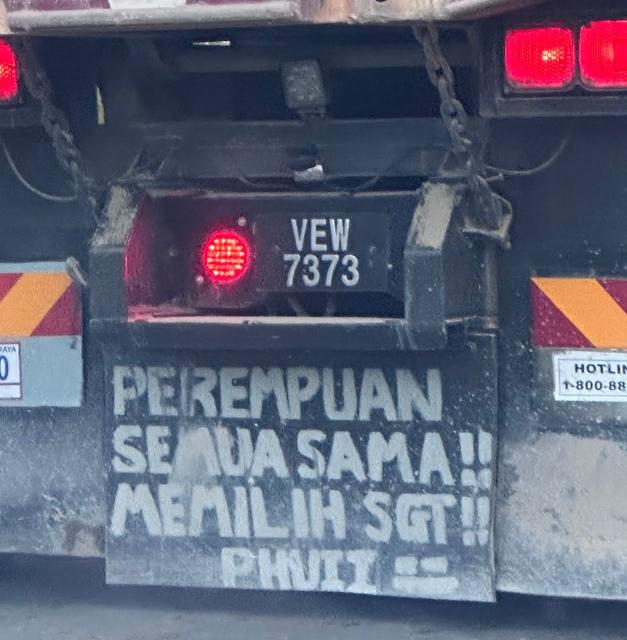 VEW
7373
RAYA
0
HOTLIN
1-800-88
PEREMPUAN
SEMUA SAMA!!
MEMILIH SGT!!
PHUII =